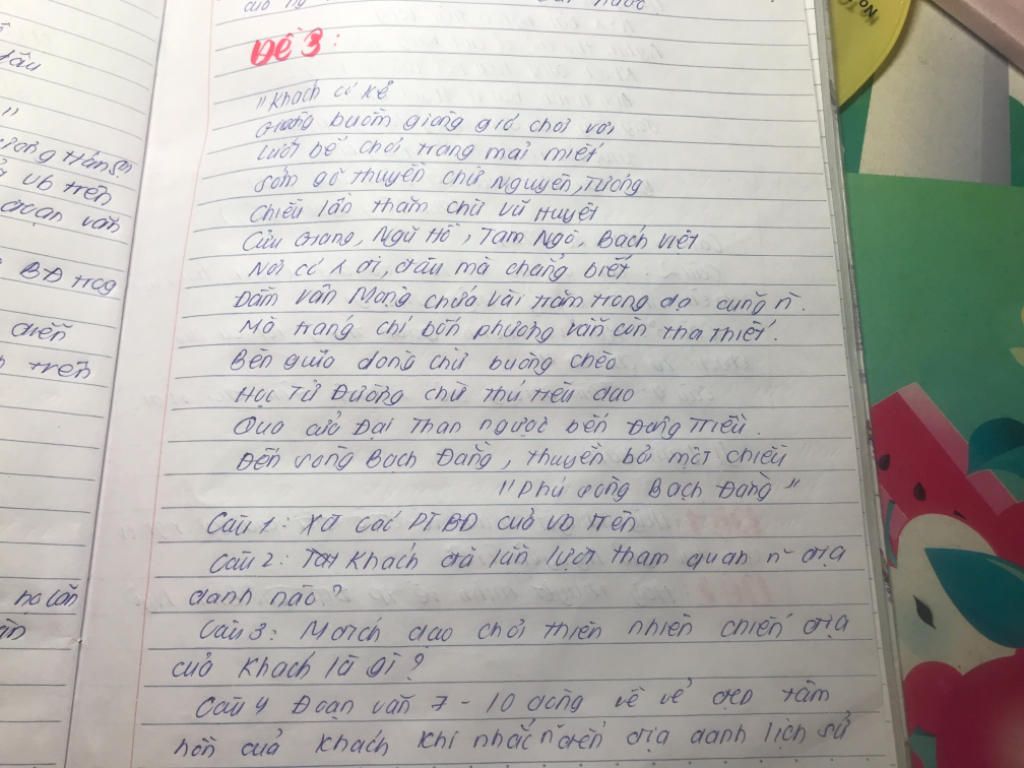 Đề 3:
"Khách có kẻ
Giương buồm giong gió chơi vơi
Lướt bể chơi trăng mải miết
Sớm gõ thuyền chừ Nguyên, Tương
Chiều lần thăm chừ Vũ Huyệt
Cửu Giang, Ngũ Hồ, Tam Ngô, Bách Việt
Nơi có ng đi, đâu mà chẳng biết
Đầm Vân Mộng chứa vài trăm trong dạ cũng n~.
Mà tráng chí bốn phương vẫn còn tha thiết.
Bèn giữa dòng chừ buông chèo
Học Tử Đường chừ thú tiêu dao
Qua cửa Đại Than ngược bến Đông Triều.
Đến sông Bạch Đằng, thuyền bơi một chiều
"Phú sông Bạch Đằng"
Câu 1: Xđ các PTBĐ của vb trên
Câu 2: Khách đã lần lượt tham quan n~ địa
danh nào?
Câu 3: M đích dạo chơi thiên nhiên chiến địa
của Khách là gì?
Câu 4 Đoạn văn 7 - 10 dòng về vẻ đẹp tâm
hồn của khách khi nhắc đến địa danh lịch sử
dầu
"
vb trên
đoạn văn
BĐ trog
diễn
trên